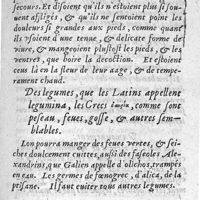 secours. Et disoient qu'ils n'estoient plus si sou-
uent affligés, & qu'ils ne sentoient point les
douleurs si grandes aux pieds, comme quand
ils vsoient d'vne tenue, & delicate forme de
viure, & mangeoient plustost les pieds, & les
ventres, que boire la decoction. Et estoient
ceus là en la fleur de leur aage, & de tempe-
rament chaud.
Des legumes, que les Latins appellent
legumina, les Grecs comme sont
peseau, feues, gosse, & autres sem-
blables.
Lon pourra manger des feues vertes, & sei-
ches doulcement cuittes, aussi des faseoles Ale-
xandrins, que Galien appelle d'olichos, trampés
en eau. Les germes de fœnogrec, d'alica, de la
ptisane. Il faut euiter tous autres legumes.